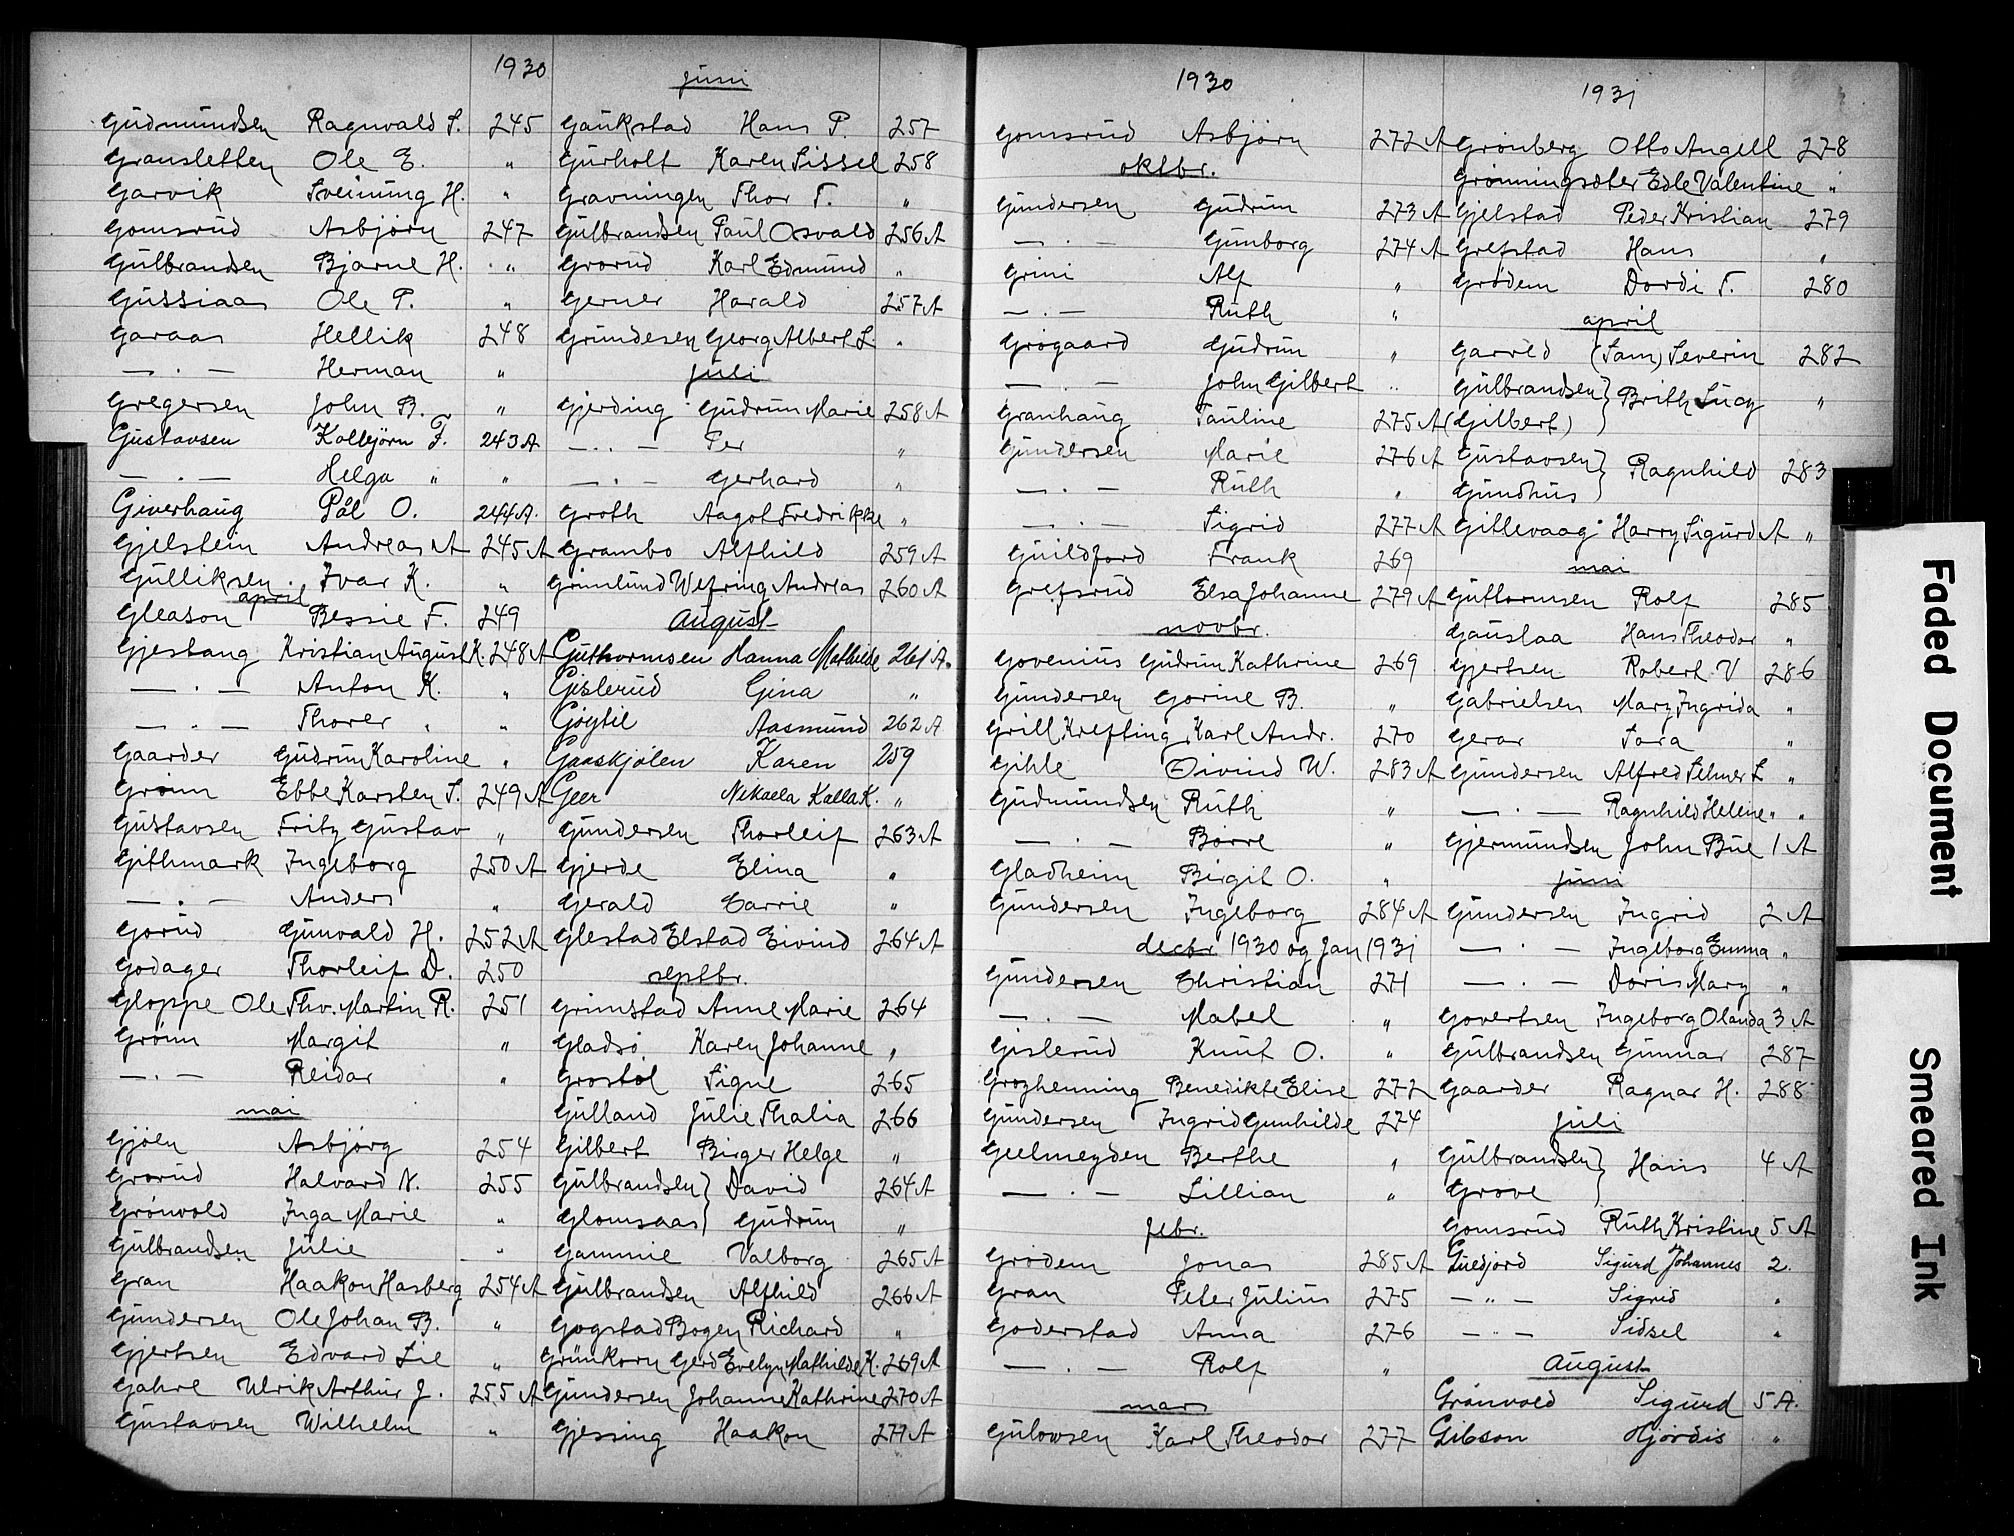 1930
Gudmundsen Ragnvald S. 245
Gransletten Ole E. "
Garvik Sveinung H. "
Gomsrud Asbjørn 247
Gulbrandsen Bjarne H. "
Gussiaas Ole P. "
Garaas Hellik 248
— . — Herman "
Gregersen John B. "
Gustavsen Kolbjørn F. 243A
— . — Helga " "
Giverhaug Pål O. 244A.
Gjelstein Andreas A 245A
Gulliksen Ivar K. "
april
Gleason Bessie F. 249
Gjestang Kristian August K. 248A
— . — Anton K. "
— . — Thorer " "
Gaarder Gudrun Karoline "
Grønn Ebbe Karsten S. 249A
Gustavsen Fritz Gustav "
Githmark Ingeborg 250A
— . — Anders "
Gorud Gunvald H. 252A
Godager Thorleif D. 250
Gloppe Ole Thv. Martin R. 251
Grønn Margit "
— . — Reidar "
mai
Gjøen Asbjørg 254
Grorud Halvard N. 255
Grønvold Inga Marie "
Gulbrandsen Julie "
Gran Haakon Hasberg 254A
Gundersen Ole Johan B. "
Gjertsen Edvard Lie "
Gahre Ulrik Arthur J. 255A
Gustavsen Wilhelm "
juni
Gaukstad Hans P. 257
Gurholt Karen Sissel 258
Gravningen Thor T. "
Gulbrandsen Paul Osvald 256A
Grorud Karl Edmund "
Gerner Harald 257A
Grundesen Georg Albert L. "
juli
Gjerding Gudrun Marie 258A
— . . — Per "
— . — Gerhard "
Groth Aagot Fredrikke "
Grambo Alfhild 259A
Grimlund Wefring Andreas 260A
August
Guthormsen Hanna Mathilde 261A.
Gislerud Gina "
Gøytil Aasmund 262A
Gaaskjølen Karen 259
Geer Nikaela Kalla K. "
Gundersen Thorleif 263A
Gjerde Elina "
Gerald Carrie "
Glestad Elstad Eivind 264A
septbr.
Grimstad Anne Marie 264
Gladsø Karen Johanne "
Grostøl Signe 265
Gulland Julie Thalia 266
Gilbert Birger Helge "
Gulbrandsen } David 264A
Glomsaas } Gudrun "
Gammie Valborg 265A
Gulbrandsen Alfhild 266A
Gogstad Bogen Richard "
Grünkorn Gerd Evelyn Mathilde K. 269A
Gundersen Johanne Kathrine 270A
Gjessing Haakon 271A
1930
Gomsrud Asbjørn 272A
oktbr.
Gundersen Gudrun 273A
— . — Gunborg 274A
Grini Alf "
— . — Ruth "
Grøgaard Gudrun "
— . — John Gilbert "
Granhaug Pauline 275A
Gundersen Marie 276A
— . — Ruth "
— . — Sigrid 277A
Guildford Frank 269
Grefsrud Elsa Johanne 279A
novbr.
Govenius Gudrun Kathrine 269
Gundersen Gorine B. "
Grill Krefting Karl Andr. 270
Gihle Øivind W. 283A
Gudmundsen Ruth "
— . — Børre "
Gladheim Birgit O. "
Gundersen Ingeborg 284A
decbr 1930 og Jan 1931
Gundersen Christian 271
— . — Mabel "
Gislerud Knut O. "
Grozhenning Benedikte Elise 272
Gundersen Ingrid Gunhilde 274
Geelmeyden Berthe "
— . — Lillian "
febr.
Grødem Jonas 285A
Gran Peter Julius 275
Goderstad Anna 276
— . — Rolf "
mars
Gulowsen Karl Theodor 277
1931
Grønberg Otto Angell 278
Grønningsæter Edle Valentine "
Gjelstad Peder Kristian 279
Grefstad Hans "
Grødem Dordi T. 280
april
Garvld (Sam) Severin 282
Gulbrandsen }
(Gilbert) } Brith Lucy "
Gustavsen }
Gundhus } Ragnhild 283
Gitlevaag Harry Sigurd A "
mai
Guttormsen Rolf 285
Gauslaa Hans Theodor "
Gjertsen Robert V 286
Gabrielsen Mary Ingrida "
Gerar Sara "
Gundersen Alfred Selmer L "
— . — Ragnhild Helene " "
Gjermundsen John Bue 1A
juni
Gundersen Ingrid 2A
— . — Ingeborg Emma "
— . — Doris Mary "
Govertsen Ingeborg Olanda 3A
Gulbrandsen Gunnar 287
Gaarder Ragnar H. 288
juli
Gulbrandsen }
Grove } Hans 4A
Gomsrud Ruth Kristine 5A
Guedjord Sigurd Johannes 2.
— " — Sigrid "
— " — Sidsel "
August
Grønvold Sigurd 5A.
Gibson Hjørdis "
Faded Document
Smeared Ink